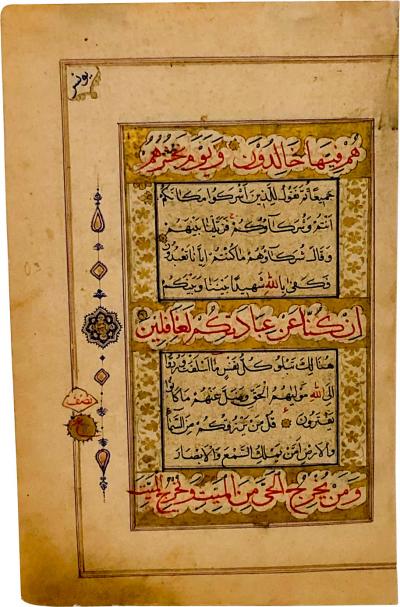 يونس
هُمْ فِيهَا خَالِدُونَ وَيَوْمَ نَحْشُرُهُمْ
جَمِيعًا ثُمَّ نَقُولُ لِلَّذِينَ أَشْرَكُوا مَكَانَكُمْ
أَنْتُمْ وَشُرَكَاؤُكُمْ فَزَيَّلْنَا بَيْنَهُمْ
وَقَالَ شُرَكَاؤُهُمْ مَا كُنْتُمْ إِيَّانَا تَعْبُدُونَ
فَكَفَى بِاللَّهِ شَهِيدًا بَيْنَنَا وَبَيْنَكُمْ
إِنْ كُنَّا عَنْ عِبَادَتِكُمْ لَغَافِلِينَ
هُنَالِكَ تَبْلُو كُلُّ نَفْسٍ مَا أَسْلَفَتْ وَرُدُّوا
إِلَى اللَّهِ مَوْلَاهُمُ الْحَقِّ وَضَلَّ عَنْهُمْ مَا كَانُوا
يَفْتَرُونَ قُلْ مَنْ يَرْزُقُكُمْ مِنَ السَّمَاءِ
وَالْأَرْضِ أَمَّنْ يَمْلِكُ السَّمْعَ وَالْأَبْصَارَ
وَمَنْ يُخْرِجُ الْحَيَّ مِنَ الْمَيِّتِ وَيُخْرِجُ الْمَيِّتَ
نصف